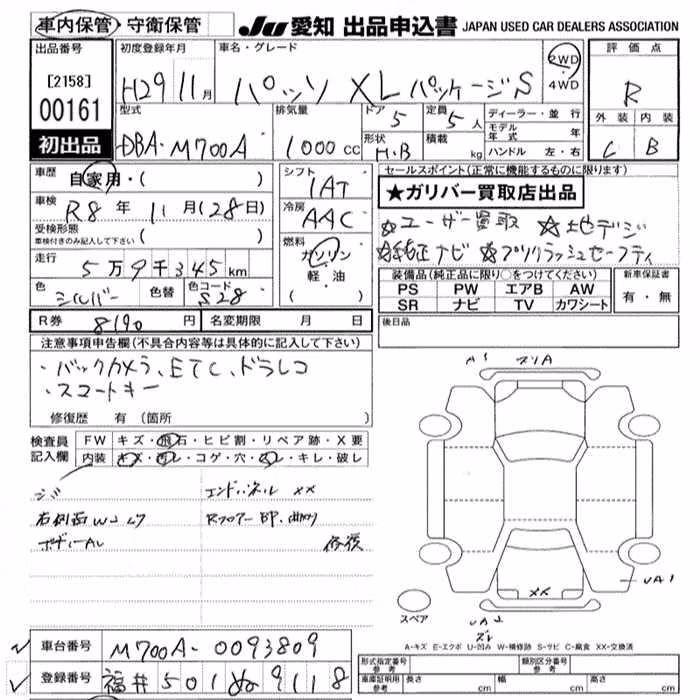 車内保管・守衛保管 JU 愛知 出品申込書 JAPAN USED CAR DEALERS ASSOCIATION
出品番号 初度登録年月 車名・グレード 2WD 4WD 評価点
[2158] 00161 H29 11月 パッソ XL パッケージS R
初出品
型式 排気量 ドア 5 定員 5人 ディーラー・並行 外装 内装
DBA-M700A 1000cc 形状 H.B 積載 kg モデル年式 年 C B
ハンドル 左・右
車歴 自家用・( ) シフト 1AT セールスポイント(正常に機能するものに限ります)
★ガリバー買取店出品
車検 R8年 11月(28日) 冷房 AAC
☆ユーザー買取 ☆地デジ
受検形態 車検付きのみ記入して下さい ( )
☆純正ナビ ☆プリクラッシュセーフティ
走行 5万9千345km 燃料 ガソリン 軽・油 ( )
装備品(純正品に限り○をつけてください) 新車保証書
色 シルバー 色替 色コード S28
PS PW エアB AW 有・無
SR ナビ TV カワシート
R券 8190円 名変期限 月 日
後日品
注意事項申告欄(不具合内容等は具体的に記入して下さい)
・バックカメラ、ETC、ドラレコ
・スマートキー
修復歴 有 (箇所 )
検査員記入欄 FW キズ・飛石・ヒビ割・リペア跡・X要
内装 キズ・汚レ・コゲ・穴・スレ・キレ・破レ
エンドパネル XX
右側面W
Rフロアー BP、曲り
修復
A1
XX
UA1
スペア
A-キズ E-エクボ U-凹み W-補修跡 S-サビ C-腐食 XX-交換済
車台番号 M700A-0093809
形式指定番号 参考 類別区分番号 参考
登録番号 福井501ぬ9118
車庫証明用 参考 長さ cm 幅 cm 高さ cm